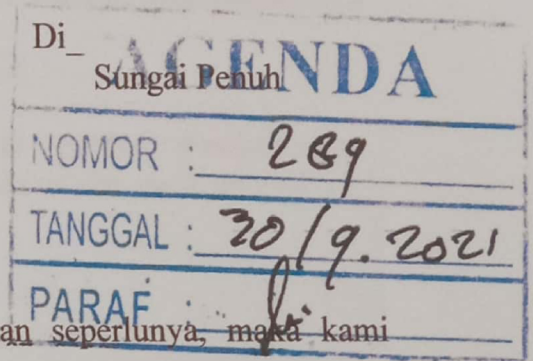 Di_
AGENDA
Sungai Penuh
NOMOR : 289
TANGGAL : 30/9.2021
PARAF :
an seperlunya, maka kami